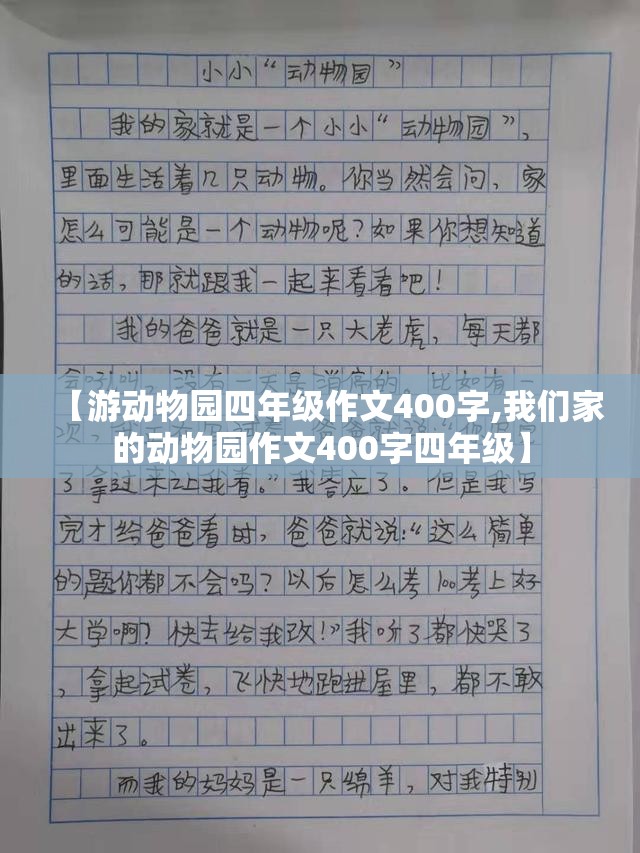 小小“动物园”
我的家就是一个小小“动物园”,
里面生活着几只动物。你当然会问,家
怎么可能是一个动物呢?如果你想知道
的话,那就跟我一起来看看吧!
我的爸爸就是一只大老虎,每天都
【游动物园四年级作文400字,我们家
的动物园作文400字四年级】
了拿过来让我看。”我答应了。但是我写
完才给爸爸看时,爸爸就说:“这么简单
的题你都不会吗?以后怎么考100考上好
大学啊?快去给我改!”我听了都快哭了
,拿起试卷,飞快地跑进屋里,都不敢
出来了。
而我的妈妈是一只绵羊,对我特别